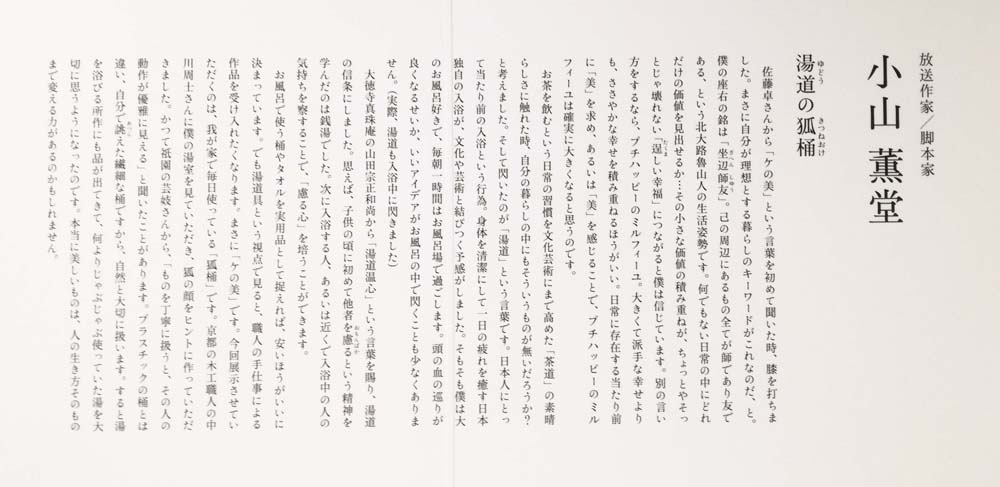 放送作家／脚本家
小山 薫堂
湯道の狐桶
ゆどう きつねおけ
佐藤卓さんから「ケの美」という言葉を初めて聞いた時、膝を打ちま
した。まさに自分が理想とする暮らしのキーワードがこれなのだ、と。
僕の座右の銘は「坐辺師友」。己の周辺にあるもの全てが師であり友で
ざへん しゆう
ある、という北大路魯山人の生活姿勢です。何でもない日常の中にどれ
だけの価値を見出せるか…その小さな価値の積み重ねが、ちょっとやそっ
とじゃ壊れない「逞しい幸福」につながると僕は信じています。別の言い
たくま
方をするなら、プチハッピーのミルフィーユ。大きくて派手な幸せより
も、ささやかな幸せを積み重ねるほうがいい。日常に存在する当たり前
に「美」を求め、あるいは「美」を感じることで、プチハッピーのミル
フィーユは確実に大きくなると思うのです。
お茶を飲むという日常の習慣を文化芸術にまで高めた「茶道」の素晴
らしさに触れた時、自分の暮らしの中にもそういうものが無いだろうか？
と考えました。そして閃いたのが「湯道」という言葉です。日本人にとっ
て当たり前の入浴という行為。身体を清潔にして一日の疲れを癒す日本
独自の入浴が、文化や芸術と結びつく予感がしました。そもそも僕は大
のお風呂好きで、毎朝一時間はお風呂場で過ごします。頭の血の巡りが
良くなるせいか、いいアイデアがお風呂の中で閃くことも少なくありま
せん。（実際、湯道も入浴中に閃きました）
大徳寺真珠庵の山田宗正和尚から「湯道温心」という言葉を賜り、湯道
の信条にしました。思えば、子供の頃に初めて他者を慮るという精神を
おもんぱか
学んだのは銭湯でした。次に入浴する人、あるいは近くで入浴中の人の
気持ちを察することで、「慮る心」を培うことができます。
お風呂で使う桶やタオルを実用品として捉えれば、安いほうがいいに
決まっています。でも湯道具という視点で見ると、職人の手仕事による
作品を受け入れたくなります。まさに「ケの美」です。今回展示させてい
ただくのは、我が家で毎日使っている「狐桶」です。京都の木工職人の中
川周士さんに僕の湯室を見ていただき、狐の顔をヒントに作っていただ
きました。かつて祇園の芸妓さんから、「ものを丁寧に扱うと、その人の
動作が優雅に見える」と聞いたことがあります。プラスチックの桶とは
違い、自分で誂えた繊細な桶ですから、自然と大切に扱います。すると湯
あつら
を浴びる所作にも品が出てきて、何よりじゃぶじゃぶ使っていた湯を大
切に思うようになったのです。本当に美しいものは、人の生き方そのもの
まで変える力があるのかもしれません。